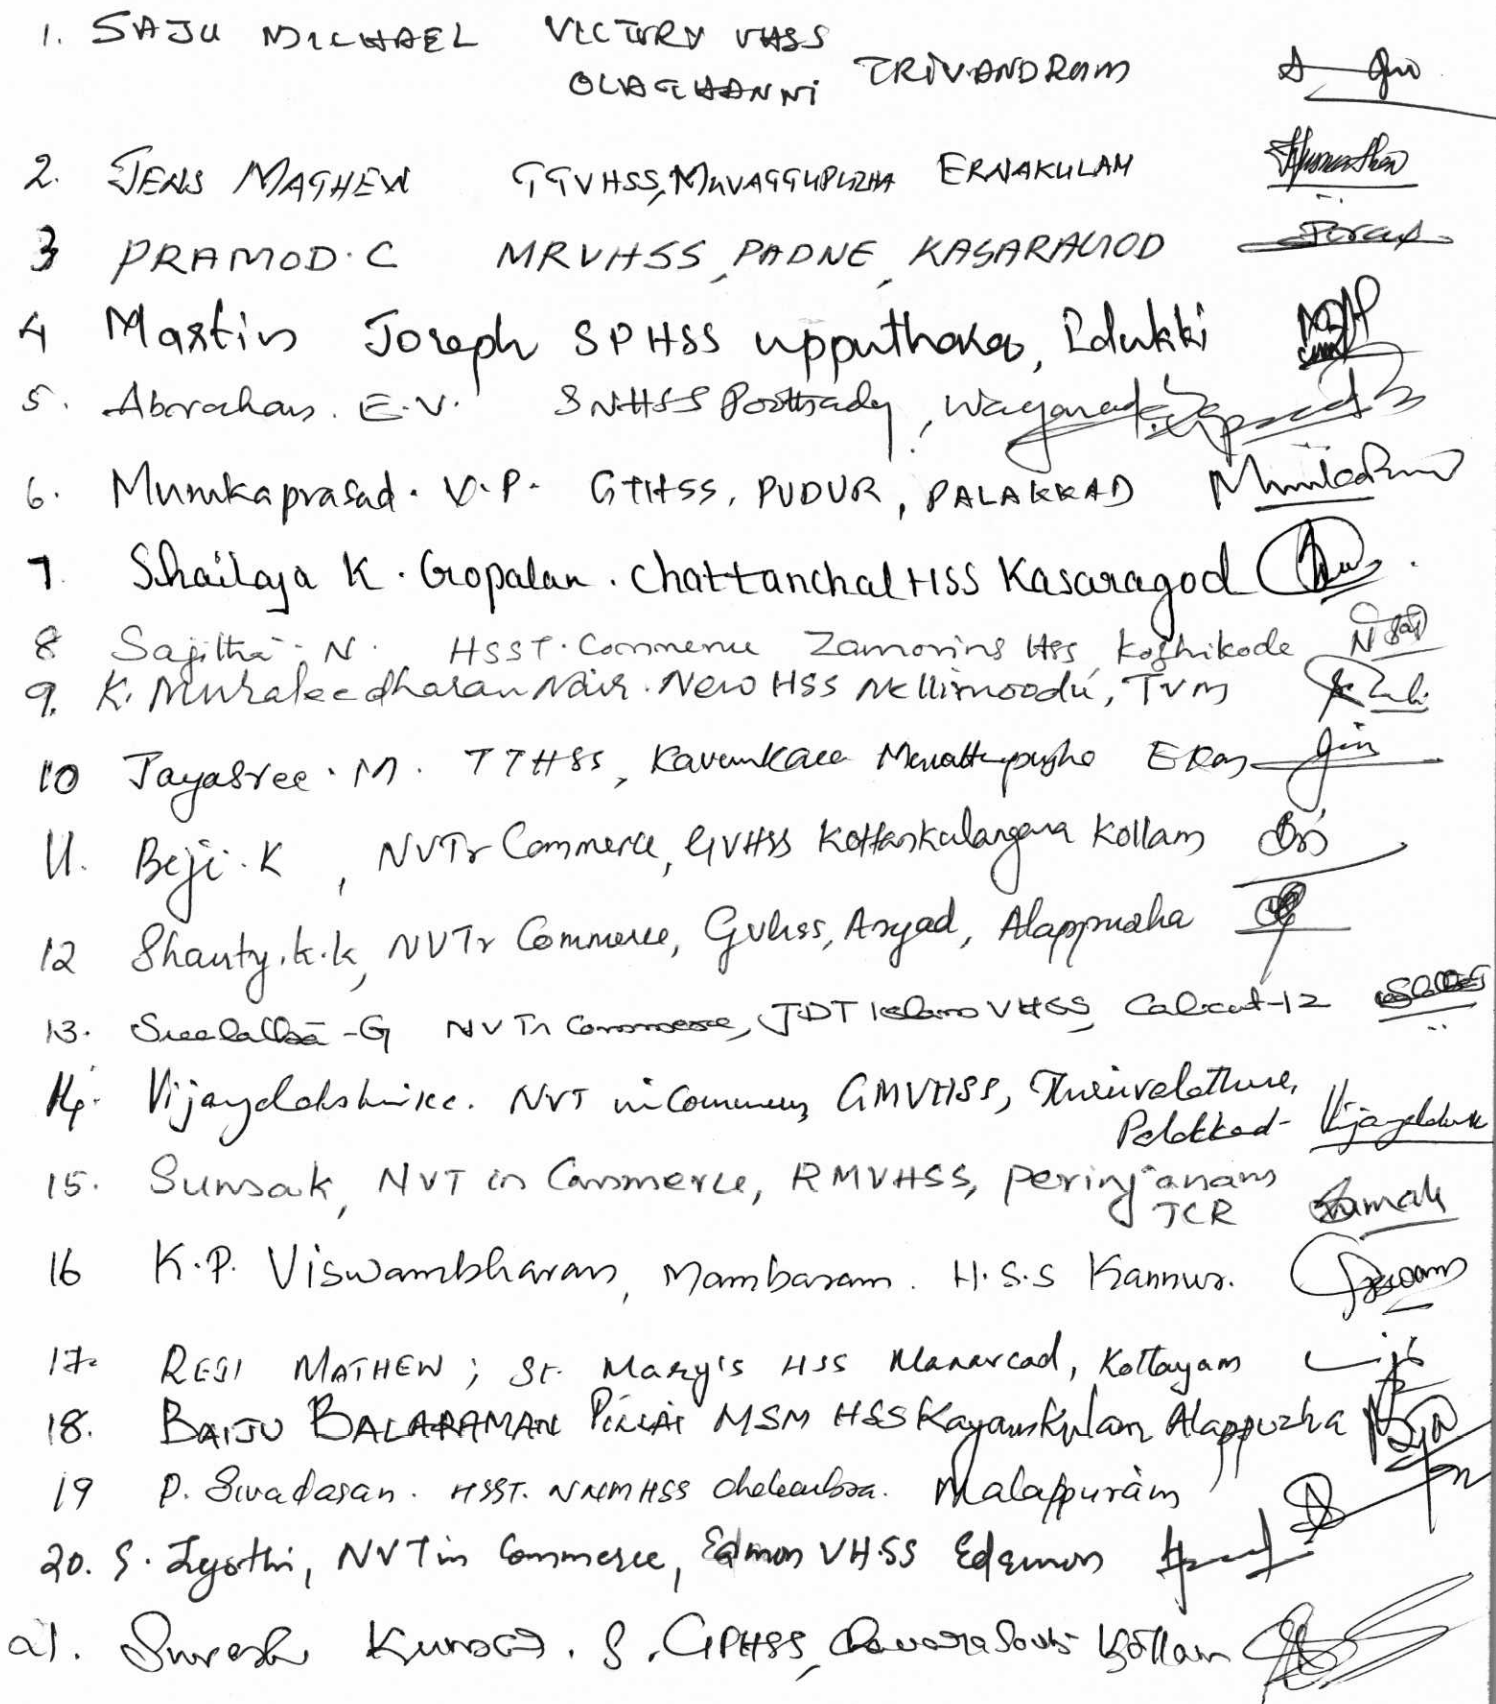 1. SAJU MICHAEL VICTORY VHSS
OLATHANNI TRIVANDRUM
2. JENS MATHEW TTVHSS, MUVATTUPUZHA ERNAKULAM
3 PRAMOD.C MRVHSS, PADNE, KASARAGOD
4 Martin Joseph SPHSS upputhara, Idukki
5. Abraham. E.V. SNHSS Poothady, Wayanad
6. Munikaprasad. V.P. GTHSS, PUDUR, PALAKKAD
7. Shailaja K. Gopalan. Chattanchal HSS Kasaragod
8 Sajitha. N. HSST. Commerce Zamorins Hss, Kozhikode
9. K. Muraleedharan Nair. New HSS Nellimoodu, TVM
10 Jayasree. M. TTHSS, Kavumkara Muvattupuzha EKM
11. Beji. K, NVTr Commerce, GVHSS Kottankulangara Kollam
12 Shanty.k.k, NVTr Commerce, Gvhss, Aryad, Alappuzha
13. Sreelatha -G NVTr Commerce, JDT Islam VHSS, Calicut-12
14. Vijayalakshmi NVT in Commerce, GMVHSS,
Palakkad Vijayalakshmi
15. NVT in Commerce, RMVHSS, Perinjanam
TCR
16 K.P. Viswambharan, Mambaram. H.S.S Kannur.
17. REJI MATHEW; St. Mary's HSS Manarcad, Kottayam
18. BAIJU BALARAMAN PILLAI MSM HSS Kayamkulam Alappuzha
19 P. Sivadasan. HSST. NNMHSS Chelembra. Malappuram
20. S. Jyothi, NVT in Commerce, Edmon VHSS Edamon
21. Suresh Kumar. S. GPHSS, Kollam